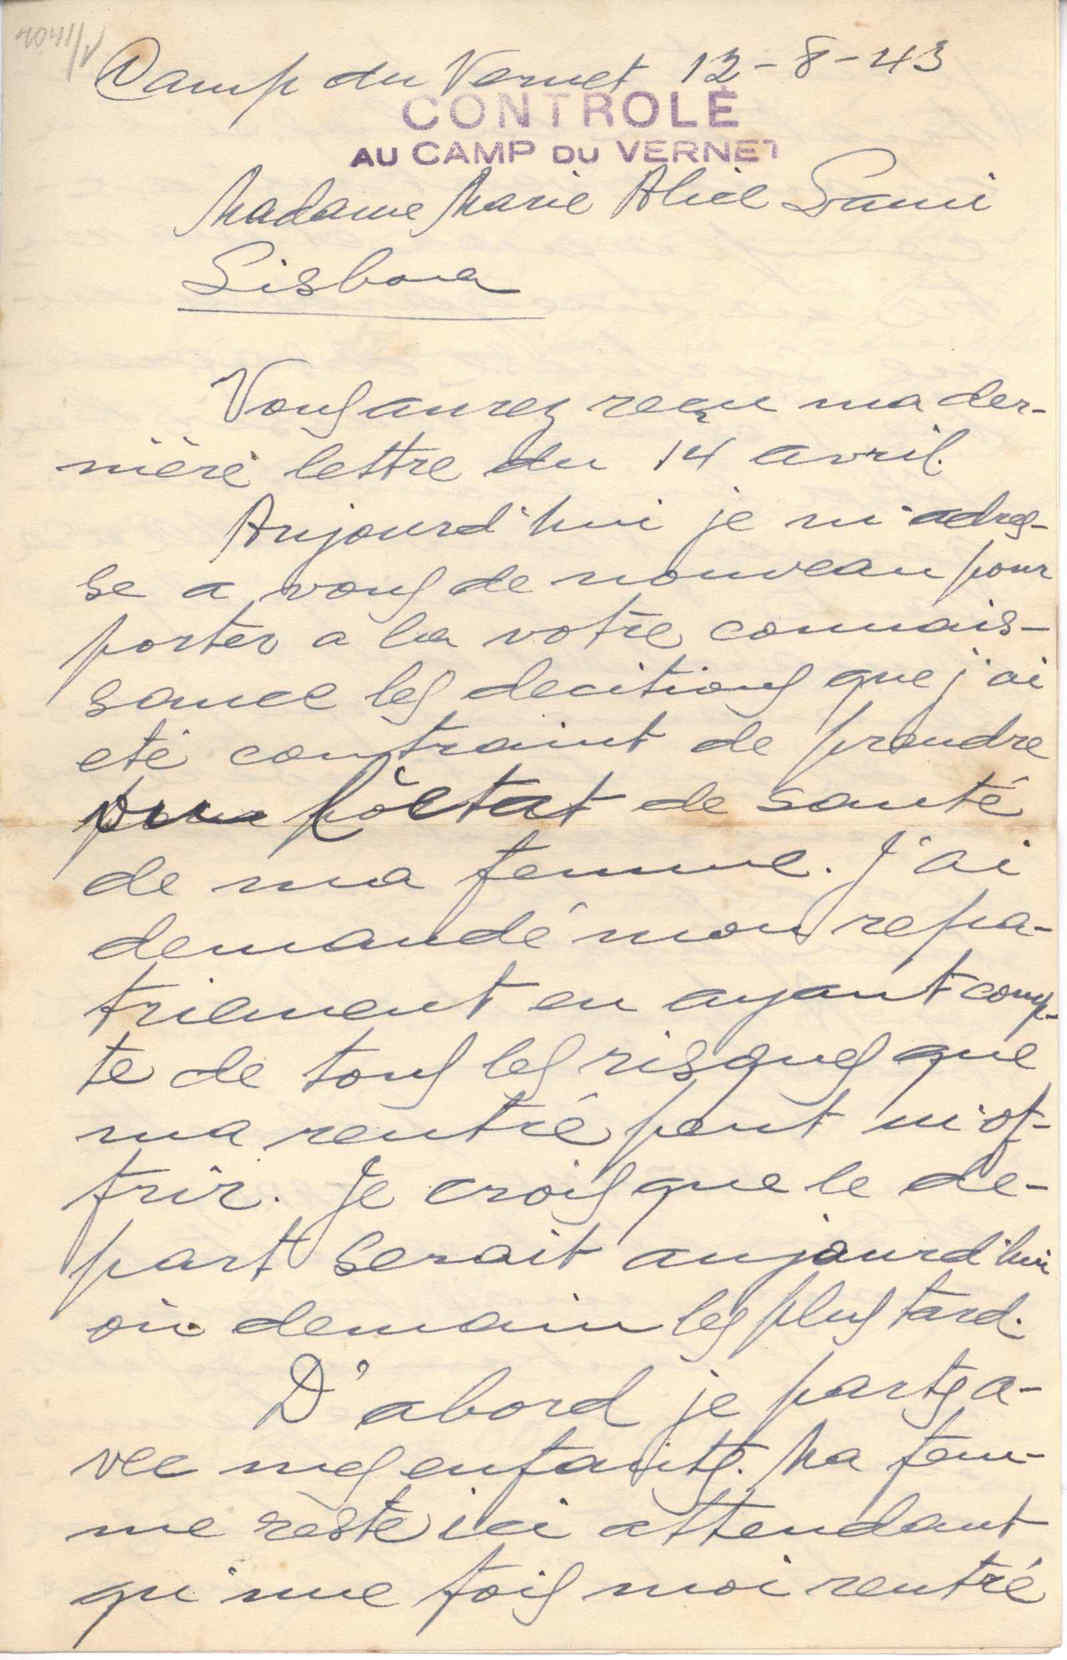 Camp du Vernet 12-8-43
CONTROLÉ
AU CAMP DU VERNET
Madame Marie Alice Lami
Lisbona
Vous aurez reçu ma der-
nière lettre du 14 avril.
Aujourd'hui je m'adres-
se a vous de nouveau pour
porter a la votre connais-
sance les decitions que j'ai
eté contraint de prendre
pur l'ètat de santé
de ma femme. J'ai
demandé mon repa-
triement en ayant comp-
te de tous les risques que
ma rentré peut m'of-
frir. Je crois que le de-
part serait aujourd'hui
où demain les plus tard.
D'abord je parts a-
vec mes enfants. Ma fem-
me reste ici attendant
qu'une fois moi rentré